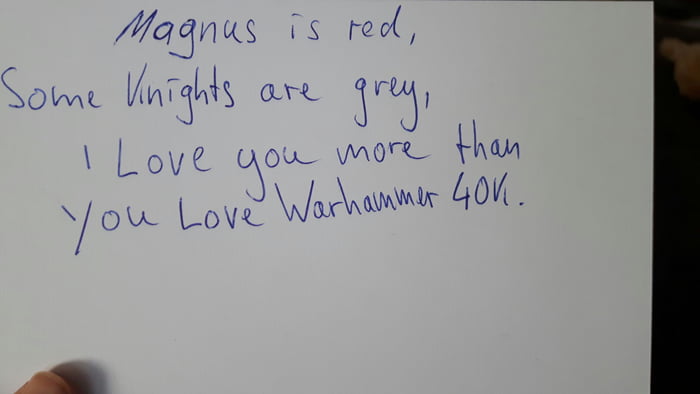 Magnus is red,
Some Knights are grey,
I Love you more than
you Love Warhammer 40K.